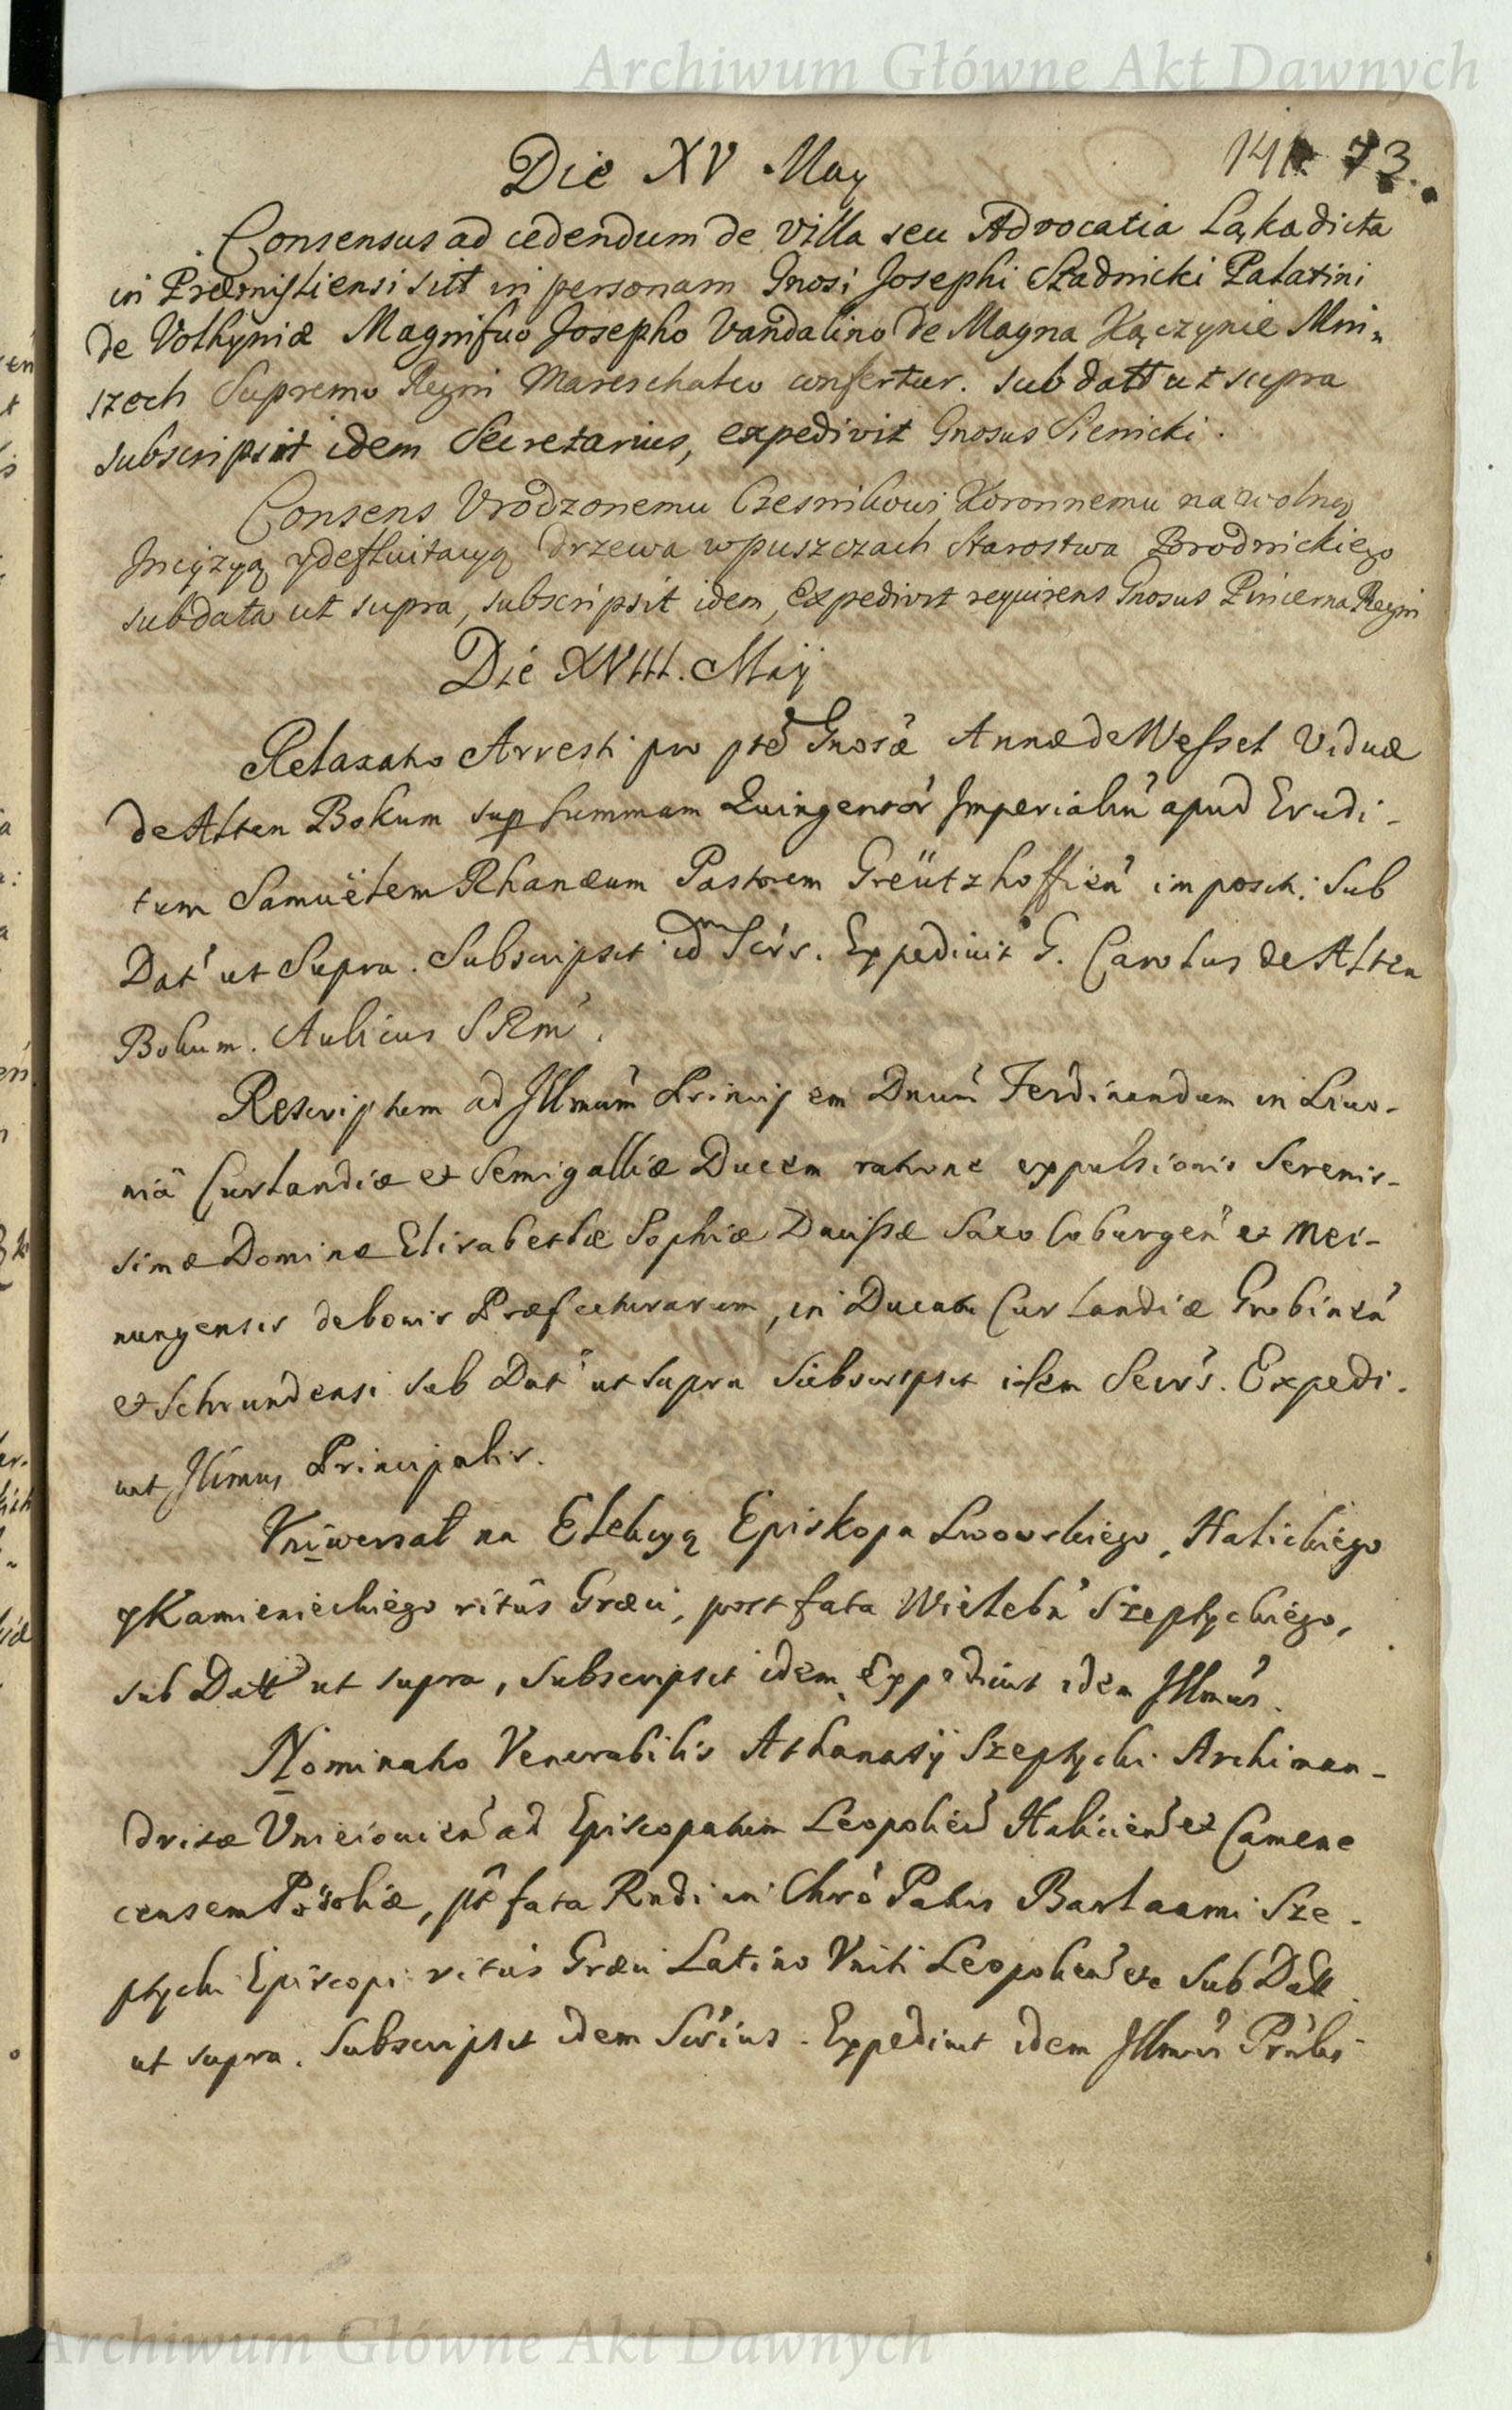 Archiwum Główne Akt Dawnych
73.
Die XV May
Consensus ad cedendum de Villa seu Advocatia Łąka dicta
in Præmisliensi sitt in personam Gnosi Josephi Stadnicki Palatini
de Volhyniæ Magnifico Josepho Vandalino de Magna Kączynie Mni„
szech Supremo Regni Mareschalco confertur. sub datt ut supra
subscripsit idem Secretarius, expedivit Gnosus Sienicki.
Consens Vrodzonemu Czesnikowi Koronnemu na wolną
Incyzyą y defluitacyą drzewa w puszczach Starostwa Brodnickiego
sub data ut supra, subscripsit idem, Expedivit requirens Gnosus Pincerna Regni
Die XVIII. Maij
Relaxatio Arresti pro pte Gnosæ Annæ de Wessel Viduæ
de Alten Bokum sup summam Quingentor Imperialiu apud Erudi-
tum Samuëlem Rhanæum Pastorem Greützhoffien imposit: Sub
Dat ut Supra. Subscripsit idm Scrs. Expedivit G. Carolus de Alten
Bokum. Aulicus SRM.
Rescriptum ad Illmum Principem Dnum Ferdinandum in Livo-
nia Curlandiæ et Semigalliæ Ducem ratione expulsionis Serenis-
simæ Dominæ Elisabethæ Sophiæ Ducissæ Saxo Coburgen et Mei-
nungensis de bonis Præfecturarum, in Ducatu Curlandiæ Grobinen
et Schrundensi Sub Dat ut Supra Subscripsit idem Secrs. Expedi-
vit Illmus Principalis.
Vniwersał na Elekcyą Episkopa Lwowskiego, Halickiego
y Kamienieckiego ritûs Græci, post fata Wieleb Szeptyckiego,
sub Datt ut supra, Subscripsit idem Expedivit idem Illmus.
Nominatio Venerabilis Athanasij Szeptycki Archiman-
dritæ Vnieiovien ad Episcopatum Leopolien Halicien et Camene
censem Podoliæ, pt fata Rndi in Chro Patris Barlaami Sze-
ptycki Episcopi ritus Græci Latino Vniti Leopolien etc Sub Datt
ut supra. Subscripsit idem Scrius. Expedivit idem Illmus Prâlis
Archiwum Główne Akt Dawnych